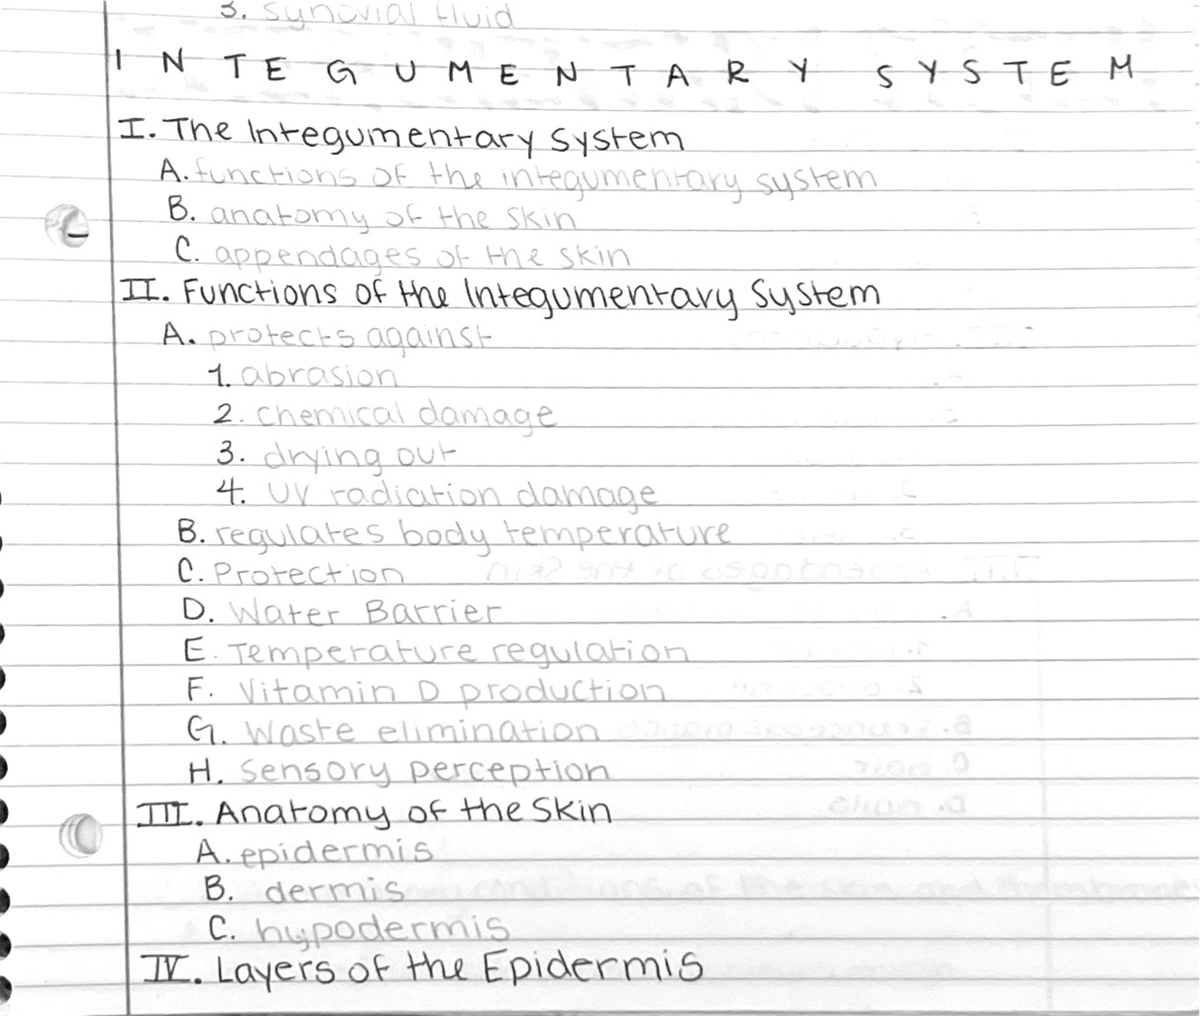 3. synovial fluid
INTEGUMENTARY SYSTEM
I. The Integumentary System
A. functions of the integumentary system
B. anatomy of the skin
C. appendages of the skin
II. Functions of the Integumentary System
A. protects against
1. abrasion
2. chemical damage
3. drying out
4. UV radiation damage
B. regulates body temperature
C. Protection
D. Water Barrier
E. Temperature regulation
F. Vitamin D production
G. Waste elimination
H. Sensory perception
III. Anatomy of the Skin
A. epidermis
B. dermis
C. hypodermis
IV. Layers of the Epidermis